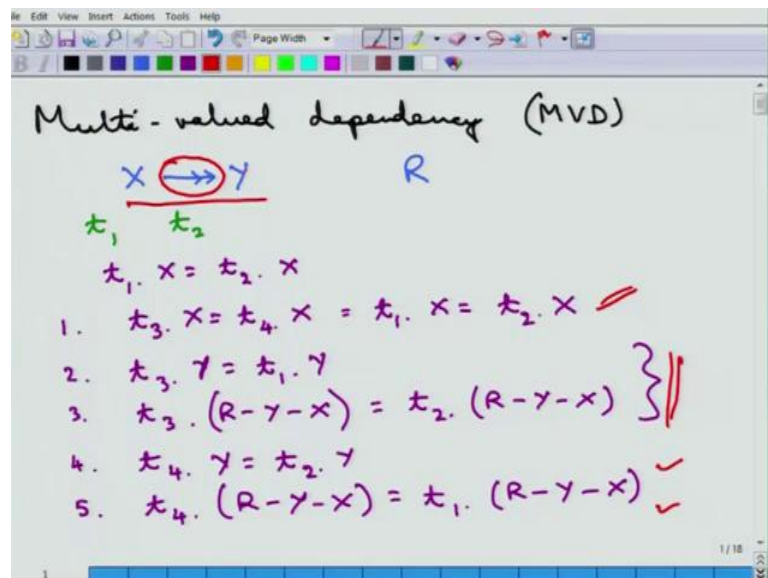 le Edit View Insert Actions Tools Help
Page Width
B I
Multi-valued dependency (MVD)
X ↠ Y R
t₁ t₂
t₁. X = t₂. X
1. t₃. X = t₄. X = t₁. X = t₂. X
2. t₃. Y = t₁. Y
3. t₃. (R-Y-X) = t₂. (R-Y-X)
4. t₄. Y = t₂. Y
5. t₄. (R-Y-X) = t₁. (R-Y-X)
1/18
1